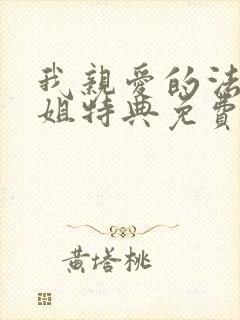 我親愛的法
姐特典免費
黃塔桃